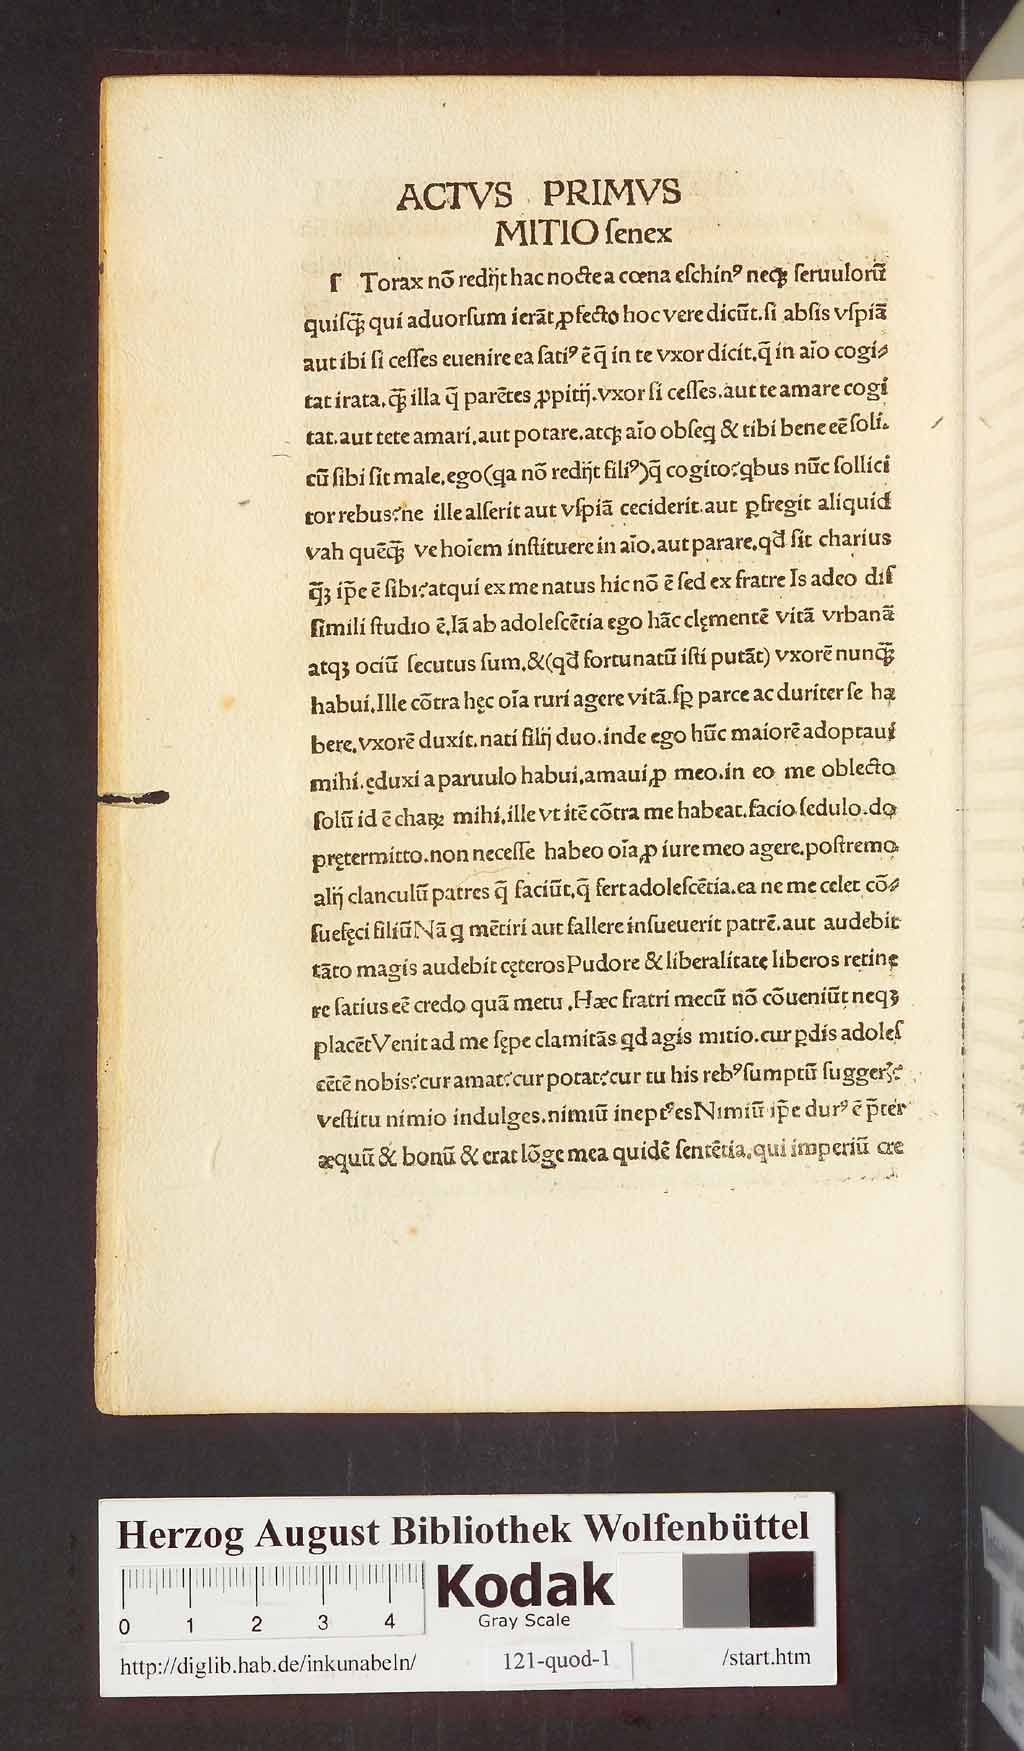 ACTVS PRIMVS
MITIO ſenex
ſ Torax nō redijt hac nocte a cœna eſchinꝰ neqꝫ ſeruulorū
quiſq̃ꝫ qui aduorſum ierāt,ꝓfecto hoc vere dicūt.ſi abſis vſpiā
aut ibi ſi ceſſes euenire ea ſatiꝰ ē q̄ in te vxor dicit.q̄ in aīo cogi⸗
tat irata.q̃ꝫ illa q̄ parētes ꝓpitij.vxor ſi ceſſes.aut te amare cogi
tat.aut tete amari.aut potare.atqꝫ aīo obſeq & tibi bene eē ſoli.
cū ſibi ſit male.ego(qa nō redijt filiꝰ)q̄ cogito?qbus nūc ſollici
tor rebus?ne ille alſerit aut vſpiā ceciderit.aut ꝑfregit aliquid
vah quēq̃ꝫ ve hoīem inſtituere in aīo.aut parare.qd̄ ſit charius
q̃ꝫ ip̄e ē ſibi?atqui ex me natus hic nō ē ſed ex fratre Is adeo diſ
ſimili ſtudio ē.Iā ab adoleſcētia ego hāc clęmentē vitā vrbanā
atqꝫ ociū ſecutus ſum.&(qd̄ fortunatū iſti putāt) vxorē nunq̃ꝫ
habui.Ille cōtra hęc oīa ruri agere vitā.ſꝑ parce ac duriter ſe ha
bere.vxorē duxit.nati filij duo.inde ego hūc maiorē adoptaui
mihi.ęduxi a paruulo habui.amaui,ꝓ meo.in eo me oblecto
ſolū id ē chaꝝ mihi.ille vt itē cōtra me habeat.facio ſedulo.do
prętermitto.non neceſſe habeo oīa,ꝓ iure meo agere.poſtremo
alij clanculū patres q̄ faciūt.q̄ fert adoleſcētia.ea ne me celet cō⸗
ſuefęci filiūNā q mētiri aut fallere inſueuerit patrē.aut audebit
tāto magis audebit cęterosPudore & liberalitate liberos retine
re ſatius eē credo quā metu .Hæc fratri mecū nō cōueniūt neqꝫ
placētVenit ad me ſępe clamitās qd agis mitio.cur ꝑdis adoleſ
cētē nobis?cur amat?cur potat?cur tu his rebꝰ ſumptū ſuggeris?
veſtitu nimio indulges.nimiū ineptꝰ esNimiū ip̄e durꝰ ē p̄ter
æquū & bonū & errat lōge mea quidē ſentētia.qui imperiū cre
Herzog August Bibliothek Wolfenbüttel
Kodak
Gray Scale
0 1 2 3 4
http://diglib.hab.de/inkunabeln/ 121-quod-1 /start.htm